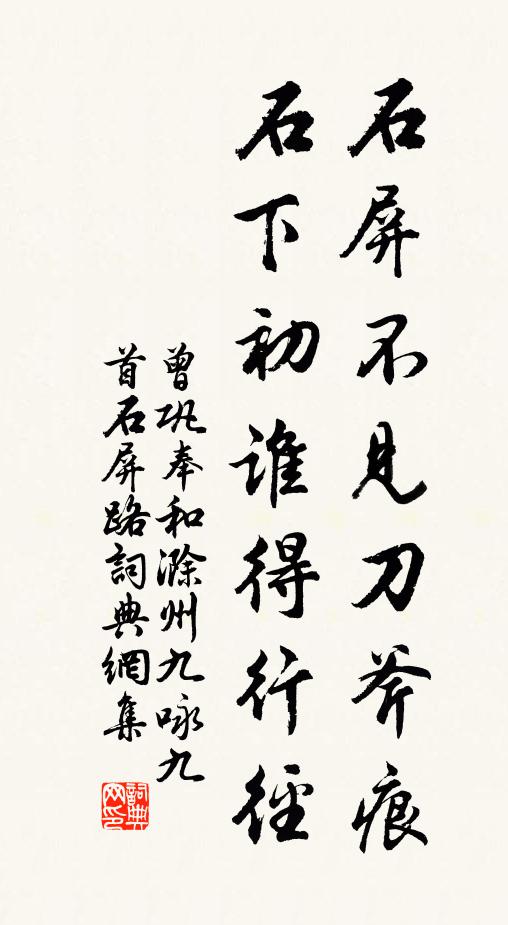 石屏不見刀斧痕
石下初誰得行徑
曾巩奉和滁州九咏九
首石屏路詞典網集
詞典网印